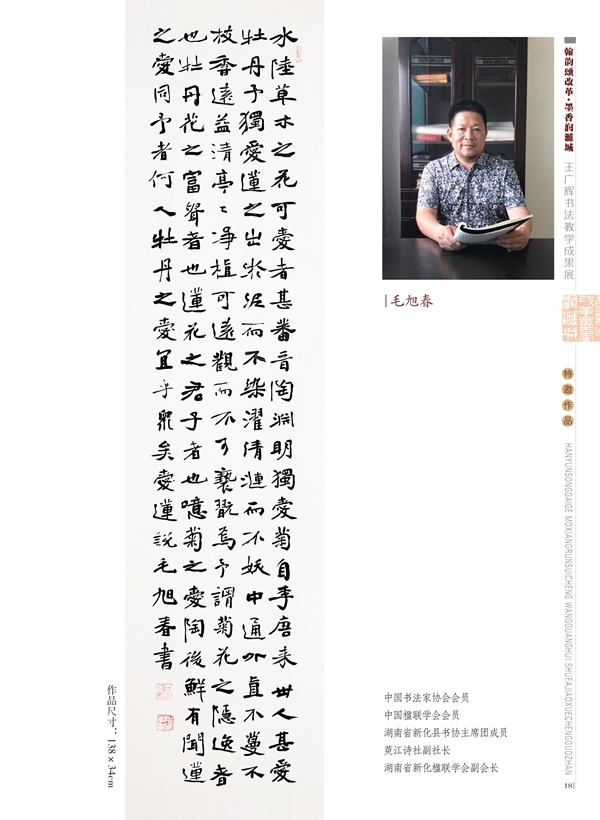 水陸草木之花可愛者甚番晋陶渊明獨愛菊自李唐来世人甚愛
牡丹予獨愛蓮之出淤泥而不染濯清漣而不妖中通外直不蔓不
枝香遠益清亭〻淨植可遠觀而不可褻翫焉予謂菊花之隐逸者
也牡丹花之富貴者也蓮花之君子者也噫菊之愛陶後鮮有聞蓮
之愛同予者何人牡丹之愛宜乎眾矣愛蓮說毛旭春書
作品尺寸：138×34cm
毛旭春
中国书法家协会会员
中国楹联学会会员
湖南省新化县书协主席团成员
萸江诗社副社长
湖南省新化楹联学会副会长
翰韵颂改革·墨香润濉城
王广辉书法教学成果展
特邀作品
HANYUNSONGGAIGE MOXIANGRUNSUICHENG WANGGUANGHUI SHUFAJIAOXUECHENGGUOZHAN
18